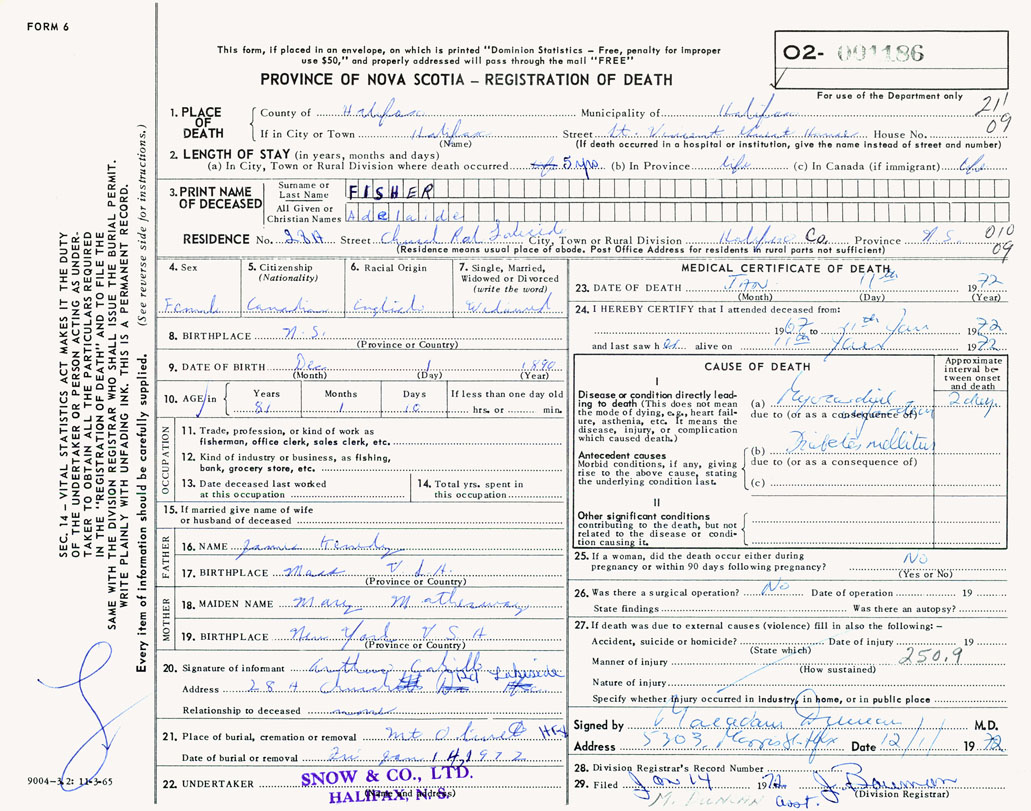 FORM 6
This form, if placed in an envelope, on which is printed "Dominion Statistics – Free, penalty for improper
use $50," and properly addressed will pass through the mail "FREE"
PROVINCE OF NOVA SCOTIA – REGISTRATION OF DEATH
O2- 001186
For use of the Department only
211
09
1. PLACE OF DEATH
County of Halifax Municipality of Halifax
If in City or Town Halifax Street St. Vincent House No.
(Name) (If death occurred in a hospital or institution, give the name instead of street and number)
2. LENGTH OF STAY (in years, months and days)
(a) In City, Town or Rural Division where death occurred 5 yrs. (b) In Province life (c) In Canada (if immigrant) life
3. PRINT NAME OF DECEASED
Surname or Last Name FISHER
All Given or Christian Names Adelaide
RESIDENCE No. 28A Street Church Rd Lakeside City, Town or Rural Division Halifax Co. Province N.S. 010
09
(Residence means usual place of abode. Post Office Address for residents in rural parts not sufficient)
4. Sex
Female
5. Citizenship
(Nationality)
Canadian
6. Racial Origin
English
7. Single, Married,
Widowed or Divorced
(write the word)
Widowed
8. BIRTHPLACE N.S.
(Province or Country)
9. DATE OF BIRTH Dec 1 1890
(Month) (Day) (Year)
10. AGE in Years Months Days If less than one day old
81 1 10 hrs. or min.
OCCUPATION
11. Trade, profession, or kind of work as
fisherman, office clerk, sales clerk, etc.
12. Kind of industry or business, as fishing,
bank, grocery store, etc.
13. Date deceased last worked
at this occupation
14. Total yrs. spent in
this occupation
15. If married give name of wife
or husband of deceased
FATHER
16. NAME James
17. BIRTHPLACE Mass U.S.A.
(Province or Country)
MOTHER
18. MAIDEN NAME Mary
19. BIRTHPLACE New York U.S.A
(Province or Country)
20. Signature of informant
Address 28 A Church Rd Lakeside
Relationship to deceased
21. Place of burial, cremation or removal Mt Olivet Hfx
Date of burial or removal Fri Jan 14, 1972
22. UNDERTAKER SNOW & CO., LTD.
(Name and address)
HALIFAX, N. S.
MEDICAL CERTIFICATE OF DEATH
23. DATE OF DEATH JAN 11th 1972
(Month) (Day) (Year)
24. I HEREBY CERTIFY that I attended deceased from:
1967 to 11th Jan 1972
and last saw her alive on 11th Jan 1972
CAUSE OF DEATH
Approximate interval between onset and death
I
Disease or condition directly leading to death (This does not mean the mode of dying, e.g., heart failure, asthenia, etc. It means the disease, injury, or complication which caused death.)
(a) Myocardial infarction 2 days
due to (or as a consequence of)
(b) Diabetes mellitus
due to (or as a consequence of)
(c)
Antecedent causes
Morbid conditions, if any, giving rise to the above cause, stating the underlying condition last.
II
Other significant conditions
contributing to the death, but not related to the disease or condition causing it.
25. If a woman, did the death occur either during
pregnancy or within 90 days following pregnancy? No
(Yes or No)
26. Was there a surgical operation? No Date of operation 19
State findings Was there an autopsy?
27. If death was due to external causes (violence) fill in also the following: –
Accident, suicide or homicide? Date of injury 19
(State which)
Manner of injury 250.9
(How sustained)
Nature of injury
Specify whether injury occurred in industry, in home, or in public place
Signed by M.D.
Address 5303 Morris St Hfx Date 12/1/ 1972
28. Division Registrar's Record Number
29. Filed Jan 14 1972 J. Bowman
(Division Registrar)
Asst.
SEC. 14 – VITAL STATISTICS ACT MAKES IT THE DUTY
OF THE UNDERTAKER OR PERSON ACTING AS UNDER-
TAKER TO OBTAIN ALL THE PARTICULARS REQUIRED
IN THE "REGISTRATION OF DEATH" AND TO FILE THE
SAME WITH THE DIVISION REGISTRAR WHO SHALL ISSUE THE BURIAL PERMIT.
WRITE PLAINLY WITH UNFADING INK. THIS IS A PERMANENT RECORD.
Every item of information should be carefully supplied. (See reverse side for instructions.)
9004-3.2: 11-3-65